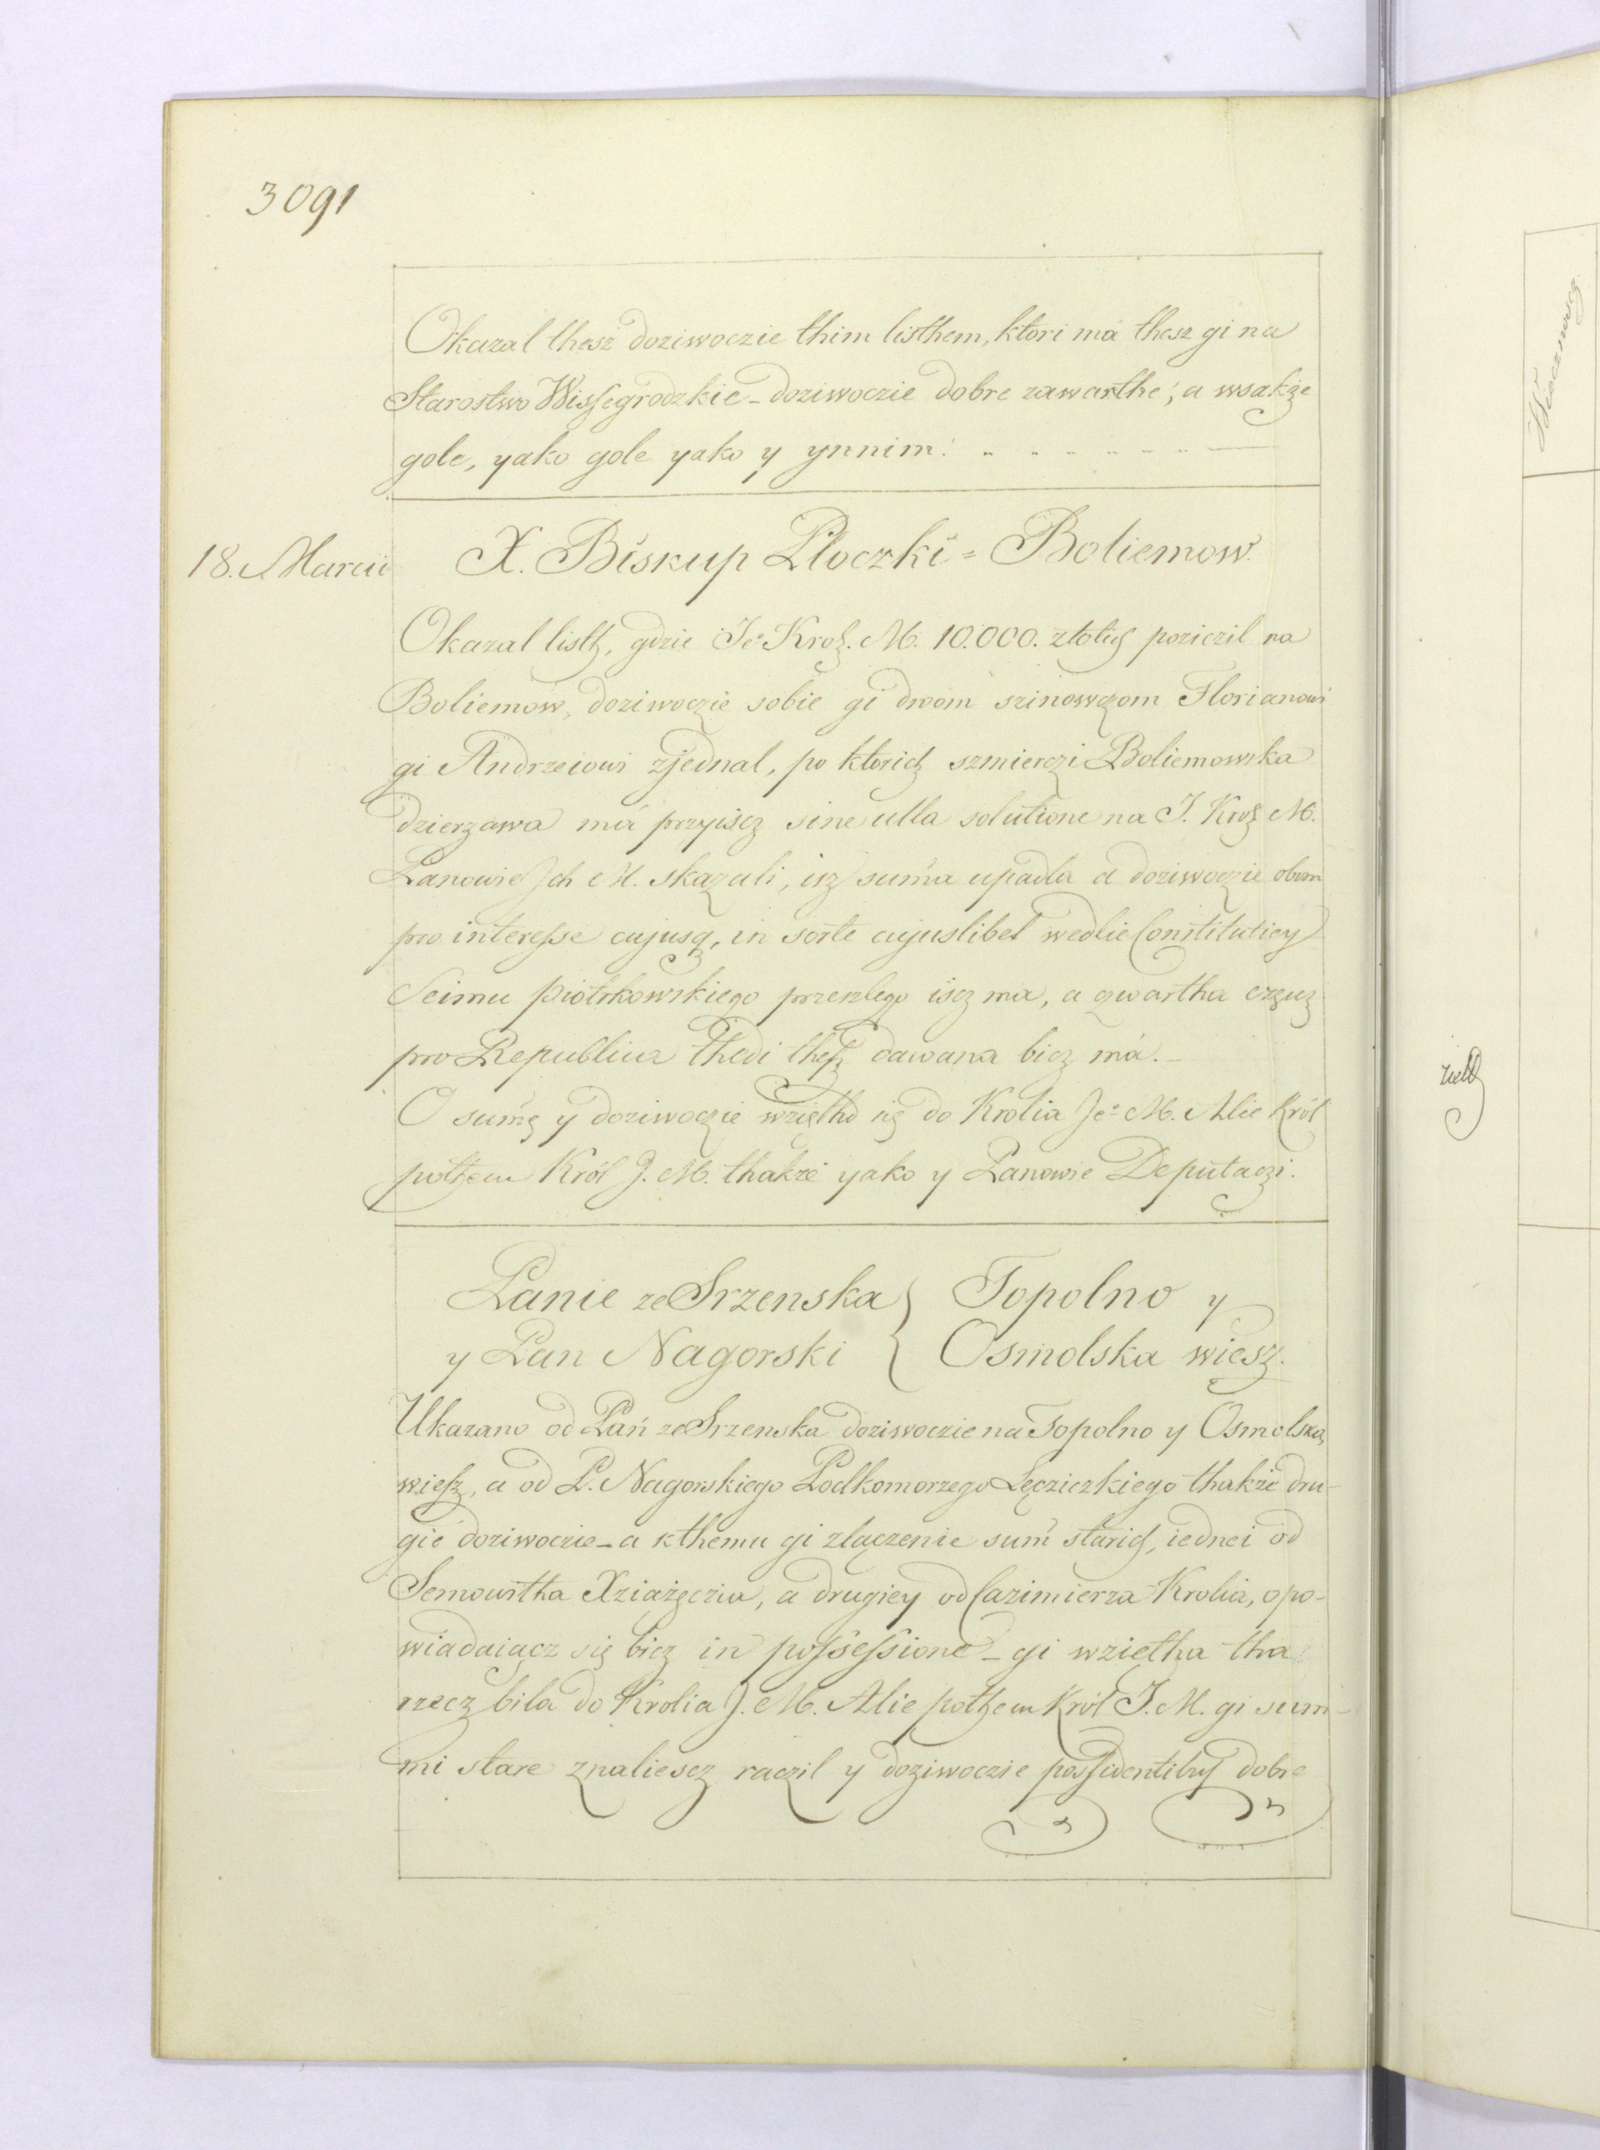 3091
Okazal thesz doziwoczie thim listhem, ktori ma thesz gi na
Starostwo Wissegrodzkie - doziwoczie dobre zawarthe, a wsakże
gole, yako gole yako y ynnim.
18. Marcii
X. Biskup Płoczki = Boliemow.
Okazal listh, gdzie Je° Kroh. M. 10.000. złotich pozicził na
Boliemow, doziwoczie sobie gi dwom szinowczom Florianowi
gi Andrzeiowi zjednal, po ktorich szmierczi Boliemowska
dzierzawa má przyiscz sine ulla solutione na J. Kroh M.
Panowie Jch M. skazali, isz suma upadla a doziwoczie obom
pro interesse cujusq, in sorte cujuslibet wedlie Constitutiey
Seimu piotrkowskiego przeszlego iscz ma, a qwartha częscz
pro Republica Thedi thesz dawana bicz má. -
O sumę y doziwoczie wziętho się do Krolia Je° M. Alie Król
pothem Król J. M. thakże yako y Panowie Deputaczi.
Panie ze Srzenska } Topolno y
y Pan Nagorski { Osmolska wiesz.
Ukazano od Pań ze Srzenska doziwoczie na Topolno y Osmolską
wiesz, a od P. Nagorskiego Podkomorzego Lęcziczkiego thakże dru-
gie doziwoczie - a kthemu gi złączenie sum starich, iednei od
Semowitha Xziażęczia, a drugiey od Cazimierza Krolia, opo-
wiadaiącz się bicz in possessione - gi wzietha tha
rzecz bila do Krolia J. M. Alie pothem Król J. M. gi sum-
mi stare znaliescz raczil y doziwoczie possidentibus dobre